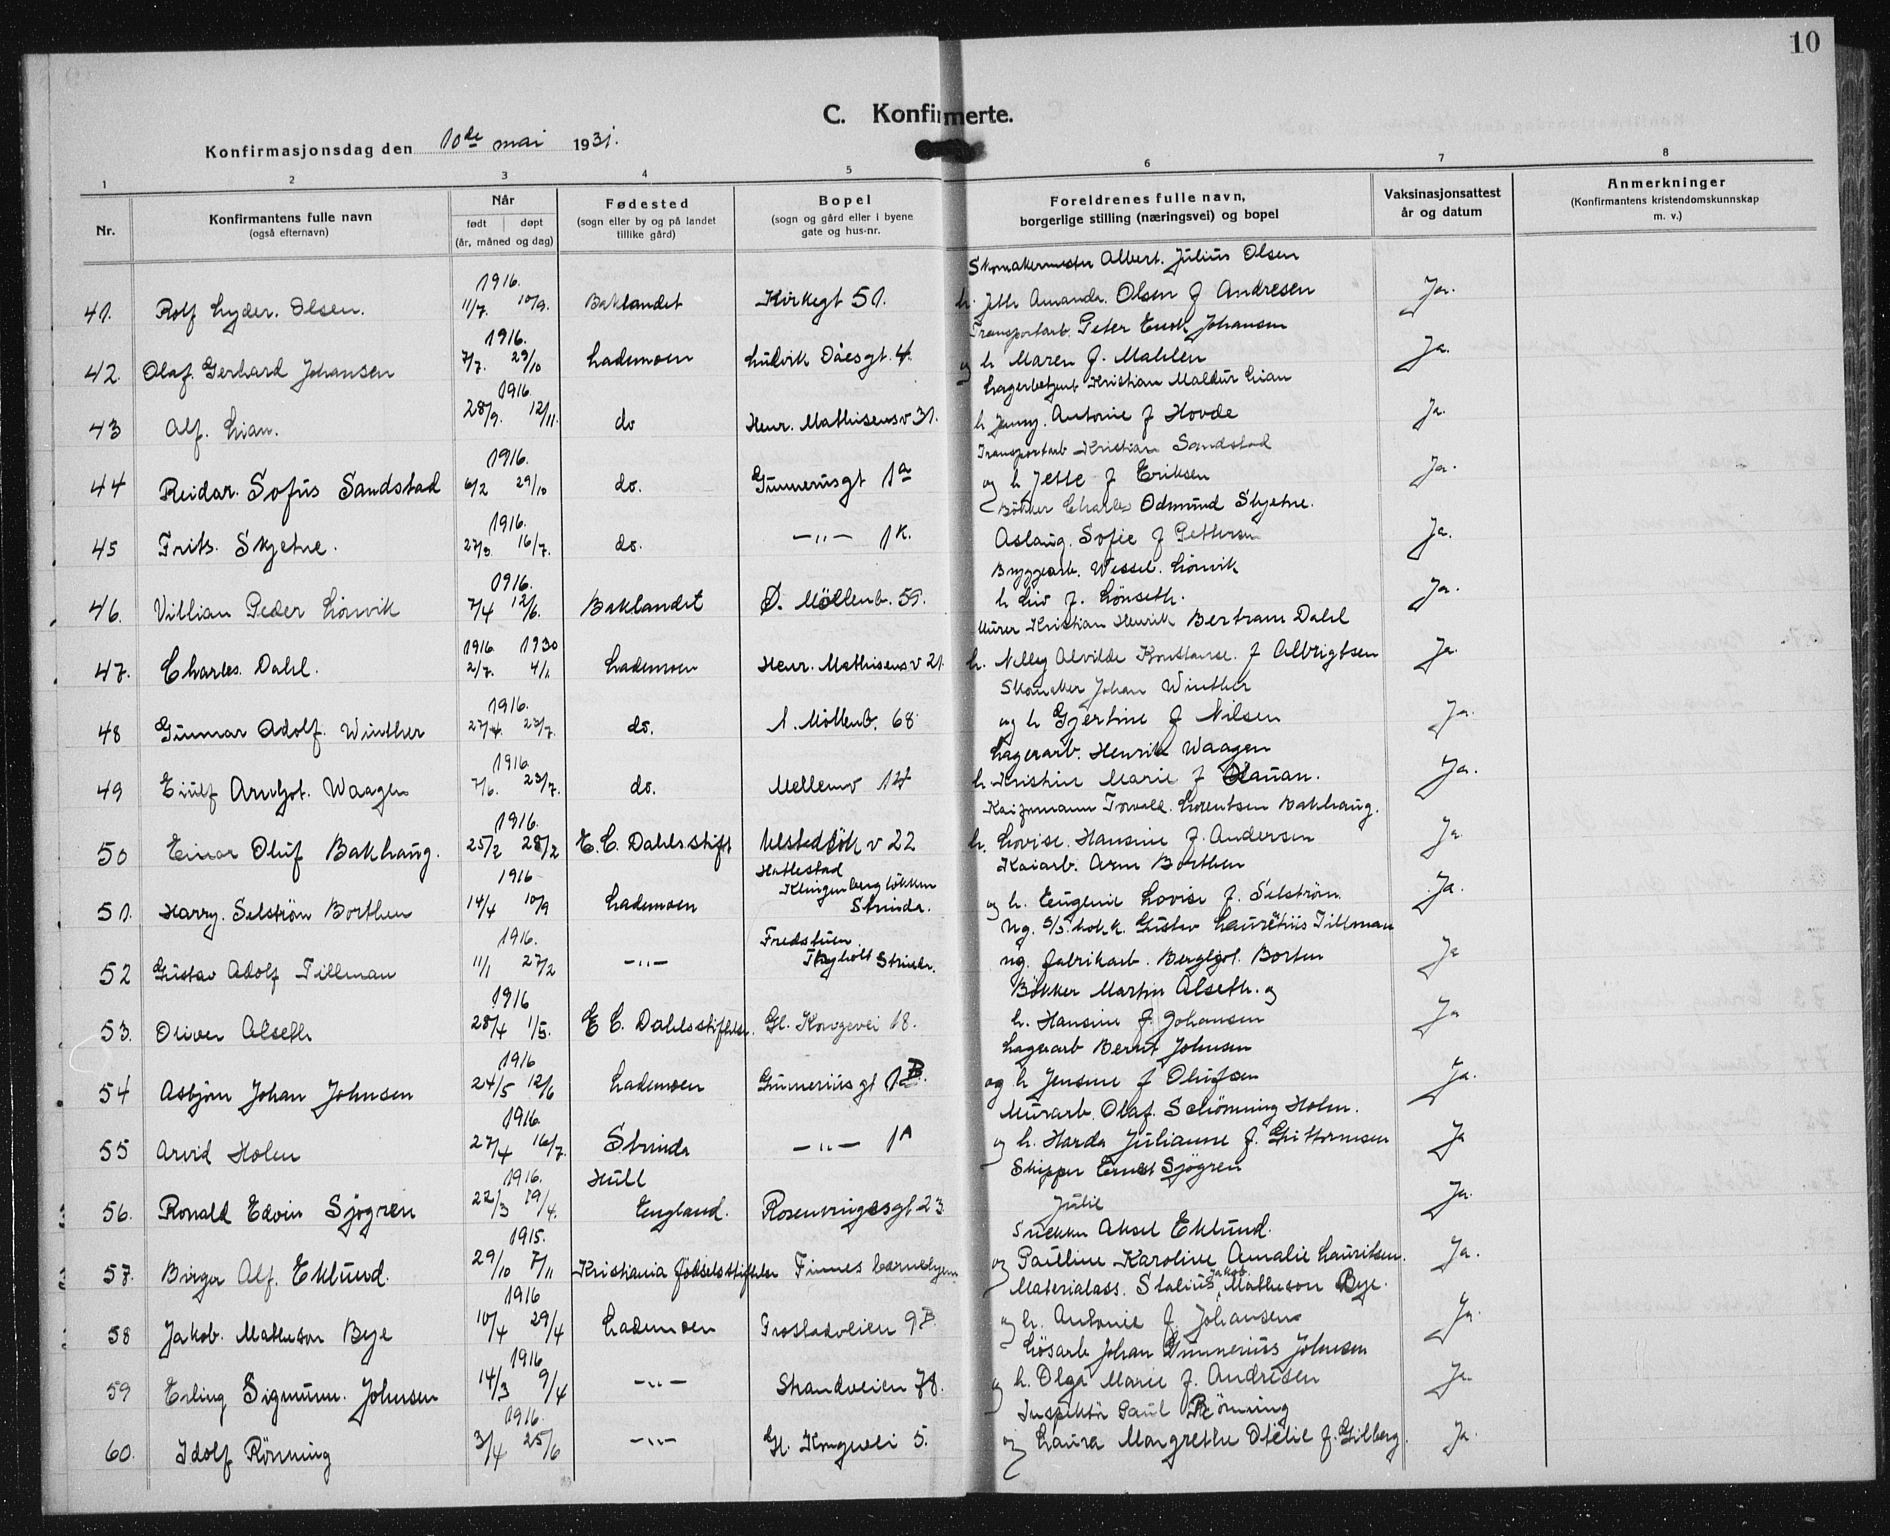 10
C. Konfirmerte.
Konfirmasjonsdag den 10de mai 1931.
1 2 3 4 5 6 7 8
Nr.
Konfirmantens fulle navn
(også efternavn)
Når
født døpt
(år, måned og dag)
Fødested
(sogn eller by og på landet
tillike gård)
Bopel
(sogn og gård eller i byene
gate og hus-nr.
Foreldrenes fulle navn,
borgerlige stilling (næringsvei) og bopel
Vaksinasjonsattest
år og datum
Anmerkninger
(Konfirmantens kristendomskunnskap
m. v.)
1916. Skomakermester Albert. Julius Olsen
41. Rolf Lyder. Olsen. 11/7. 10/9. Baklandet Kirkegt 51. h. Amanda. Olsen f Andresen Ja.
1916. Transportarb. Peter Johansen
42. Olaf. Gerhard Johansen 7/7. 29/10 Lademoen Ludvik Daesgt. 4. og h Maren f. Mahlen Ja.
1916. Lagerbetjent Kristian Maldur Lian
43 Alf. Lian. 28/9. 12/11. do Henr. Mathisensv 31. h Jenny. Antonie f Hovde Ja.
1916. Transportarb Kristian Sandstad
44 Reidar. Sofus Sandstad 6/2 29/10 do. Gunnerusgt 1a og h Jette f Eriksen Ja.
1916. Bøkker Charles Odmund Skjetne.
45 Frits. Skjetne. 27/3. 16/7. do. —"— 1K. Aslaug. Sofie f Pettersen Ja.
1916. Bryggearb. Wessel. Lönvik
46. Villian Peder Lönvik 7/4 12/6. Baklandet Ø. Möllenb. 59. h Liv f. Lönseth. Ja.
1916 1930 Murer Kristian Henrik Bertram Dahl
47. Charles. Dahl. 2/7. 4/1 Lademoen Henr. Mathisensv 21. h. Nelly Alvilde Konstanse. f Albrigtsen Ja.
1916. Skomaker Johan Winther
48 Gunnar Adolf. Winther 27/4. 23/7. do. N. Möllenb. 68 og h Gjertine f Nilsen Ja.
1916 Lagerarb. Henrik Waagen
49 Arntgot. Waagen 7/6. 23/7. do. Mellemv 14 h Kristine Marie f Hauan. Ja.
1916. Lorentsen Bakhaug.
50 Einar Oluf Bakhaug. 25/2 28/2 E. C. Dahls stift v 22 h. Lovise. Hansine f. Andersen Ja
1916 Kaiarb. Arne Borthen
51. Harry. Selström Borthen 14/4 10/9 Lademoen Hattestad Klingenberg lökken Strinda. og h. Eugenie Lovise f. Selström. Ja.
1916. Gustav Tillman
52 Gustav Adolf Tillman 11/1 27/2 —"— Fredstuen. Tyholt Strinda. ug. fabrikarb. Bergljot. Borten Ja
1916 Bökker Martin Alseth. og
53. Oliver Alseth 28/4 1/5. E C. Dahlsstiftelse. Gl. Kongevei 18. h. Hansine f. Johansen Ja
1916 Lagerarb Bernt Johnsen
54 Asbjörn Johan Johnsen 24/5 12/6 Lademoen Gunnerius gt 1B. og h Jensine f Olufsen Ja.
1916 Murarb. Olaf. Schönning Holen.
55 Arvid Holen 27/4 16/7. Strinda —"— 1A og h. Harda Julianne f. Guttormsen Ja
1916. Skipper Ernst Sjögren
56. Ronald Edvin Sjögren 22/3 19/4. Hull England. Rosenvingesgt 23 Julie Ja.
1915. Snekker Aksel Eklund.
57. Birger Alf. Eklund. 29/10 7/11 Kristiania fødselsstiftelse Finnes barnehjem og Pauline Karoline Amalie Lauritsen. Ja.
1916 Materialass. Jakob Matheson Bye.
58 Jakob. Matheson Bye 10/4 29/4 Lademoen Frostadveien 9B. og h. Antonie f. Johansen Ja.
1916 Lösarb Johan Gunnerius Johnsen
59 Erling Sigmunn. Johnsen 14/3 9/4 —"— Strandveien 78. og h. Olga Marie f. Andresen Ja
1916. Inspektör Paul Rönning
60. Idolf Rönning 3/4 25/6 —"— Gl. Kongevei 5. og Laura Margrethe Otelie f. Gilberg. Ja.